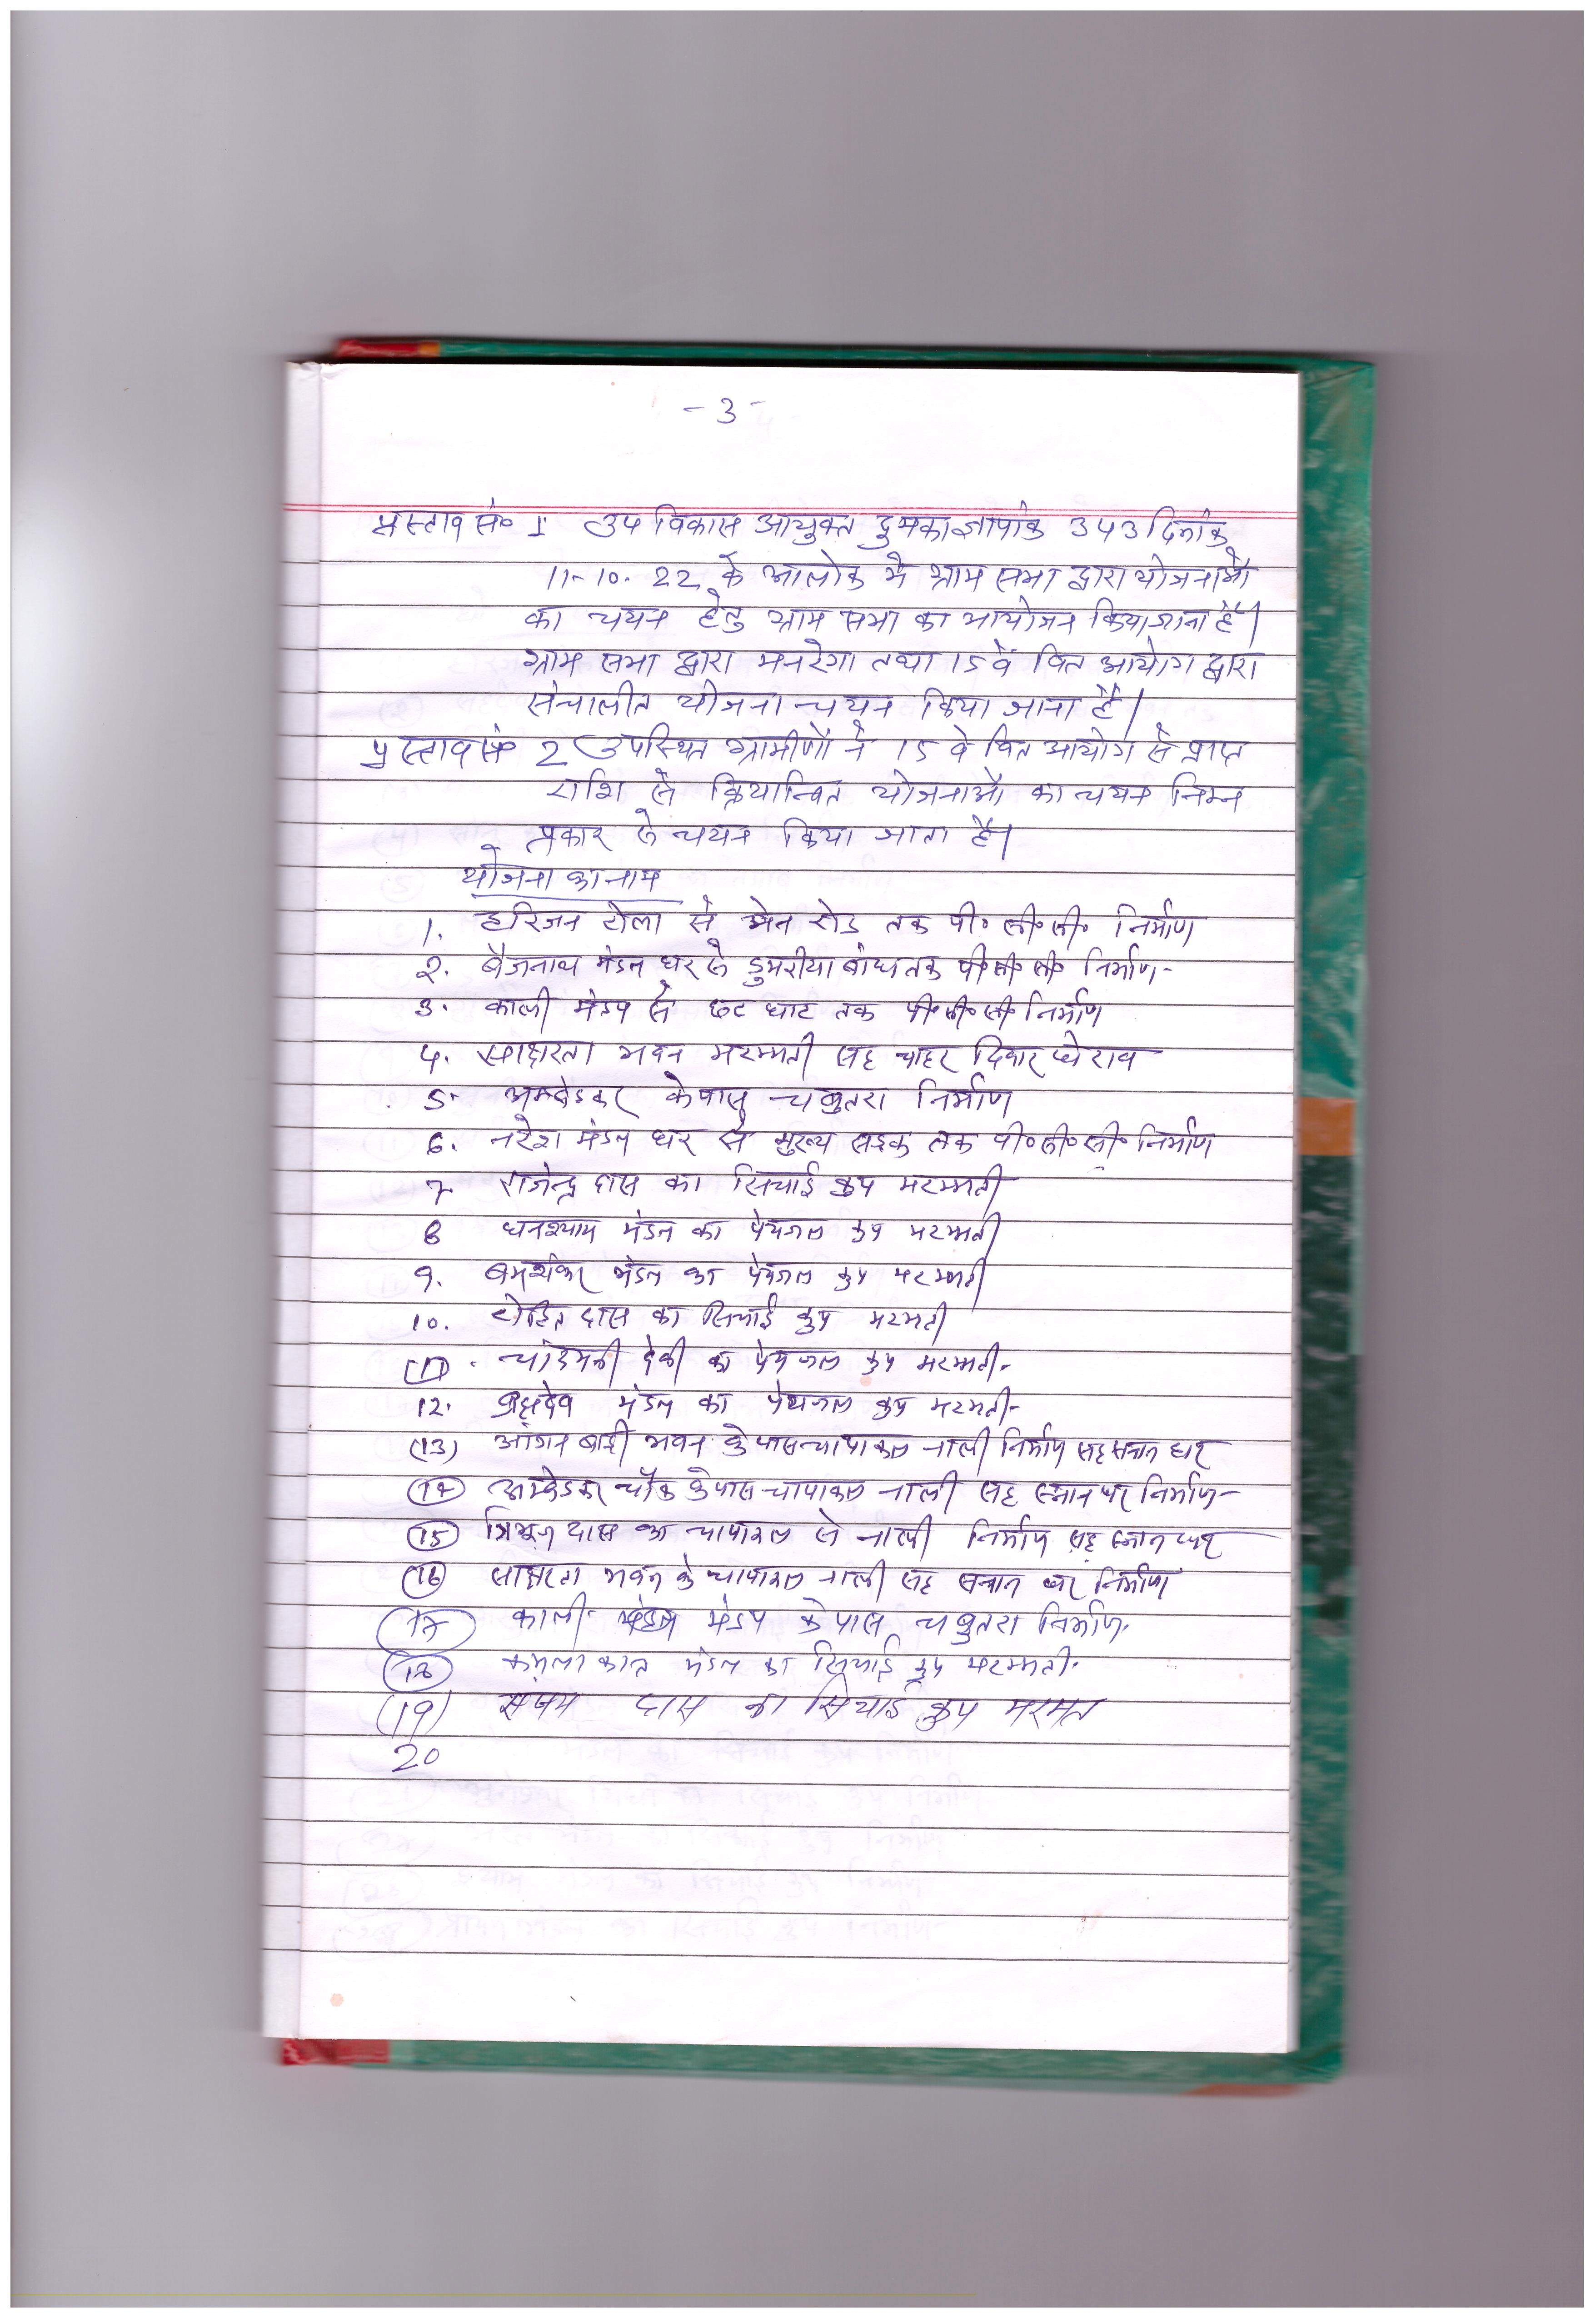 - 3 -
प्रस्ताव सं० 1 उप विकास आयुक्त दुमका ज्ञापांक 343 दिनांक
11-10-22 के आलोक मे ग्राम सभा द्वारा योजनाओं
का चयन हेतु ग्राम सभा का आयोजन किया जाना है।
ग्राम सभा द्वारा मनरेगा तथा 15 वें वित आयोग द्वारा
संचालीत योजना चयन किया जाना है।
प्रस्ताव सं० 2 उपस्थित ग्रामीणों ने 15 वे वित आयोग से प्राप्त
राशि से क्रियान्वित योजनाओं का चयन निम्न
प्रकार से चयन किया जाता है।
योजना का नाम
1. हरिजन टोला से मेन रोड तक पी० सी० सी० निर्माण
2. बैजनाथ मंडल घर से डुमरीया बांध तक पी० सी० सी० निर्माण-
3. काली मंडप से छट घाट तक पी० सी० सी० निर्माण
4. साक्षरता भवन मरम्मती सह चाहर दिवार घेराव
5. अम्बेडकर के पास चबुतरा निर्माण
6. नरेश मंडल घर से मुख्य सड़क तक पी० सी० सी० निर्माण
7 राजेन्द्र दास का सिचाई कुप मरम्मती
8 घनश्याम मंडल का पेयजल कुप मरम्मती
9. मंडल का पेयजल कुप मरम्मती
10. रोहित दास का सिचाई कुप मरमती
11. देवी का पेयजल कुप मरम्मती-
12. मंडल का पेयजल कुप मरमती-
(13) आंगन बाड़ी भवन के पास चापाकल नाली निर्माण सह सनान घर
14 अम्बेडकर चौक के पास चापाकल नाली सह स्नान घर निर्माण-
15 दास का चापाकल से नाली निर्माण सह स्नान घर
16 साक्षरता भवन के चापाकल नाली सह सनान घर निर्माण
17 काली मंडप के पास चबुतरा निर्माण-
18 कमला कान्त मंडल का सिचाई कुप मरम्मती-
(19) दास का सिचाई कुप मरमत
20